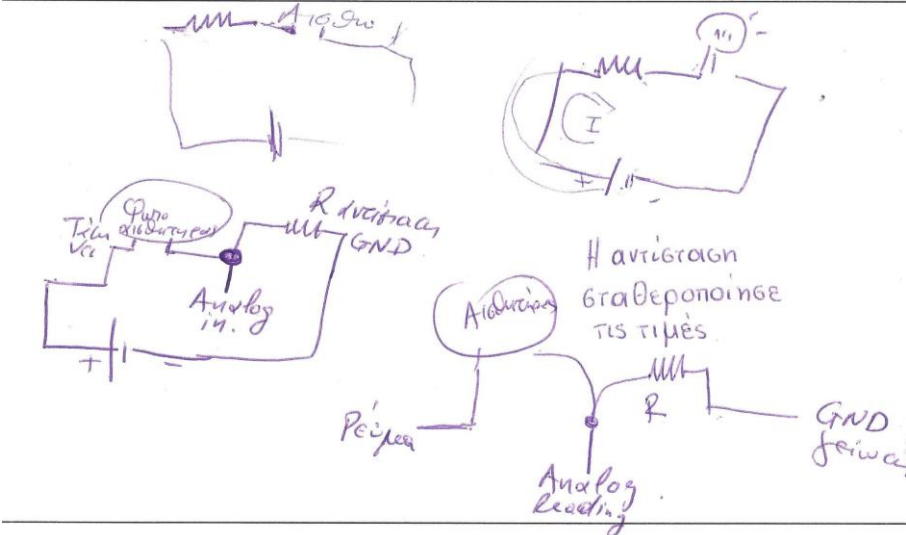 Αισθη
I
+
-
Φωτο
αισθητηρας
Τάση
Vcc
R αντίσταση
GND
Analog
in.
+
-
Η αντίσταση
σταθεροποίησε
τις τιμές
Αισθητήρας
R
Ρεύμα
GND
γείωση
Analog
Reading